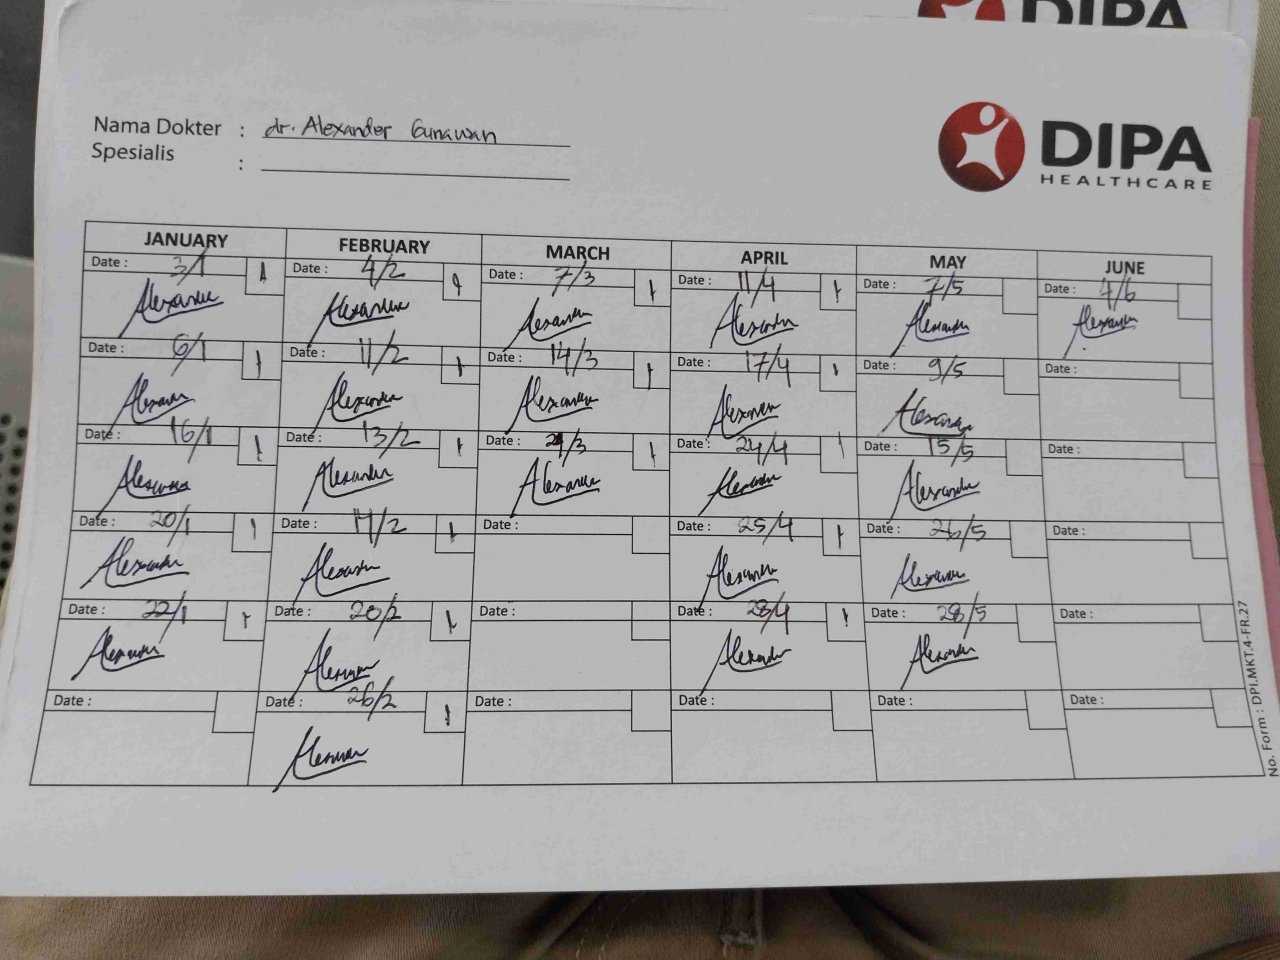 DIPA
Nama Dokter : dr. Alexander Gunawan
Spesialis :
DIPA
HEALTHCARE
JANUARY FEBRUARY MARCH APRIL MAY JUNE
Date : 3/1 1 Date : 4/2 1 Date : 7/3 1 Date : 11/4 1 Date : 7/5 Date : 4/6
Alexander Alexander Alexander Alexander Alexander Alexander
Date : 6/1 1 Date : 11/2 1 Date : 14/3 1 Date : 17/4 1 Date : 9/5 Date :
Alexander Alexander Alexander Alexander Alexander
Date : 16/1 1 Date : 13/2 1 Date : 21/3 1 Date : 24/4 1 Date : 15/5 Date :
Alexander Alexander Alexander Alexander Alexander
Date : 20/1 1 Date : 17/2 1 Date : Date : 25/4 1 Date : 26/5 Date :
Alexander Alexander Alexander Alexander
Date : 22/1 1 Date : 20/2 1 Date : Date : 28/4 1 Date : 28/5 Date :
Alexander Alexander Alexander Alexander
Date : Date : 26/2 1 Date : Date : Date : Date :
Alexander
No. Form : DPI.MKT.4-FR.27